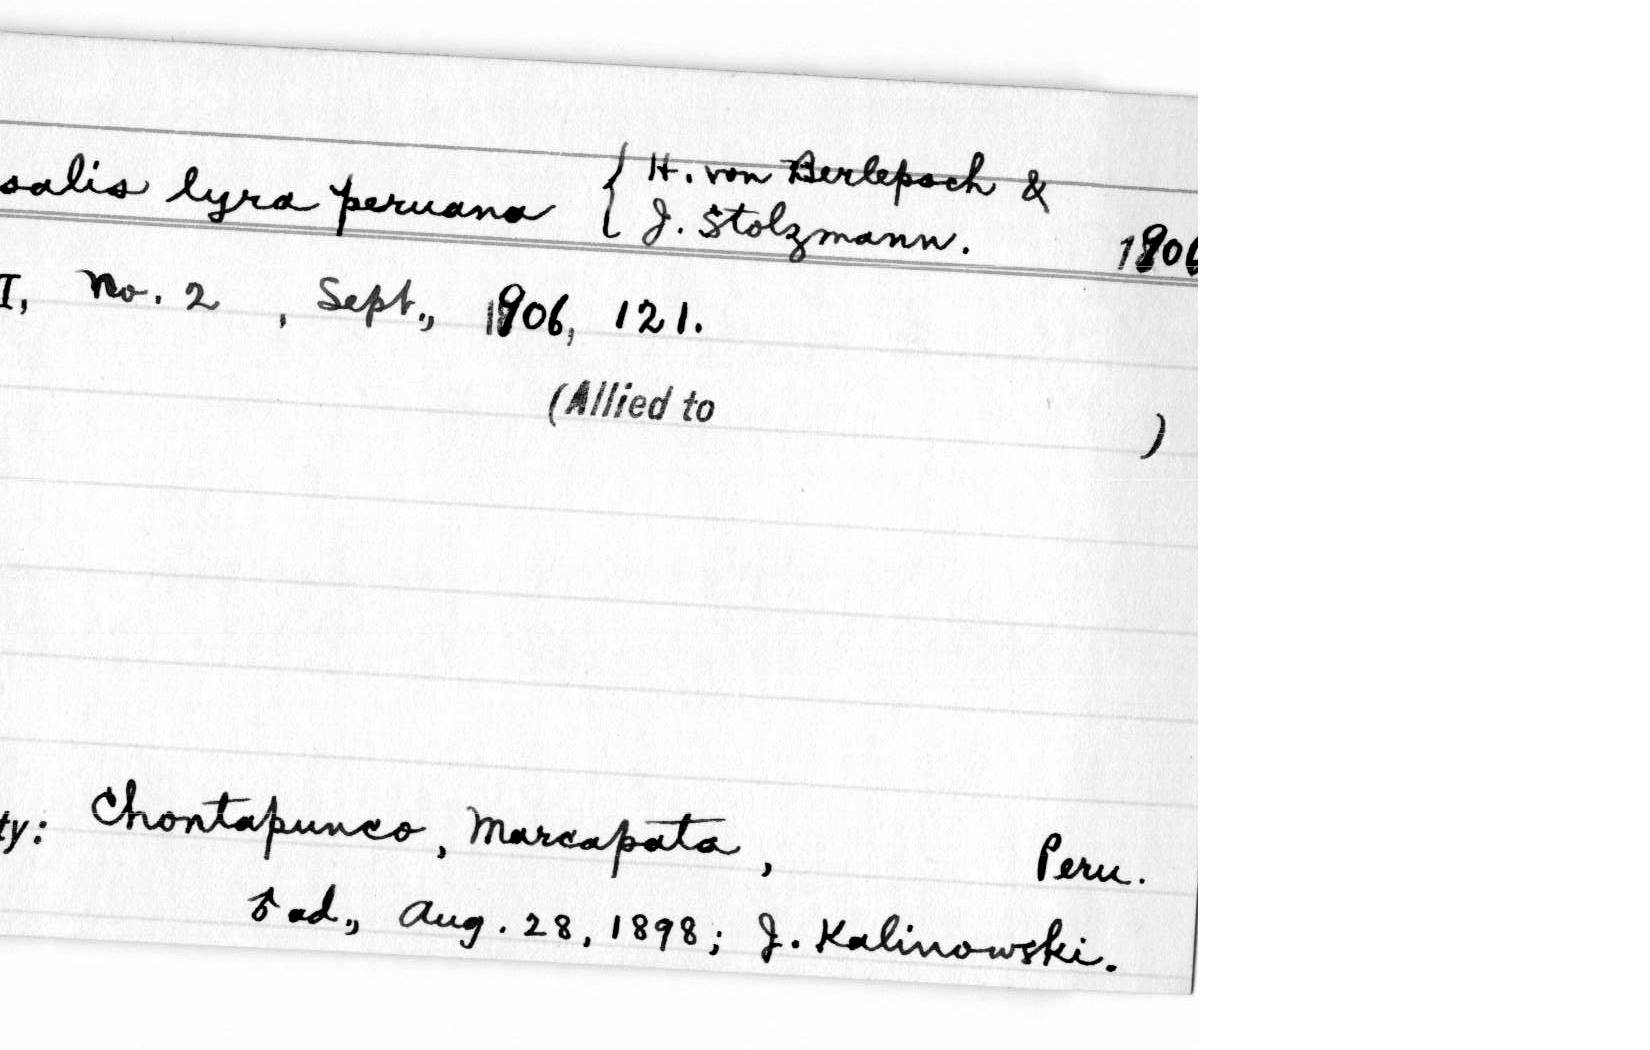 salis lyra peruana { H. von Berlepsch &
J. Stolzmann. 1906
I, No. 2 , Sept., 1906, 121.
(Allied to )
ty: Chontapunco, Marcapata, Peru.
♂ ad., Aug. 28, 1898; J. Kalinowski.